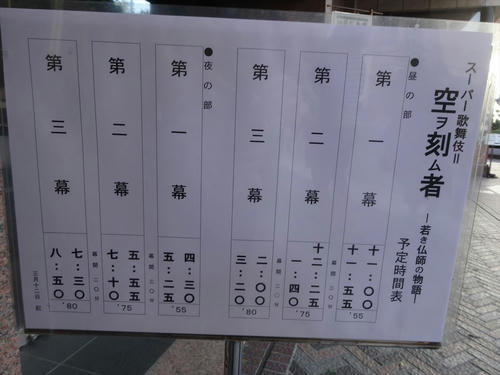 スーパー歌舞伎Ⅱ
空ヲ刻ム者
―若き仏師の物語―
予定時間表
●昼の部
第一幕
十一:〇〇
十一:五五
'55
幕間 三〇分
第二幕
十二:二五
一:四〇
'75
幕間 二〇分
第三幕
二:〇〇
三:二〇
'80
●夜の部
第一幕
四:三〇
五:二五
'55
幕間 三〇分
第二幕
五:五五
七:一〇
'75
幕間 二〇分
第三幕
七:三〇
八:五〇
'80
三月十二日